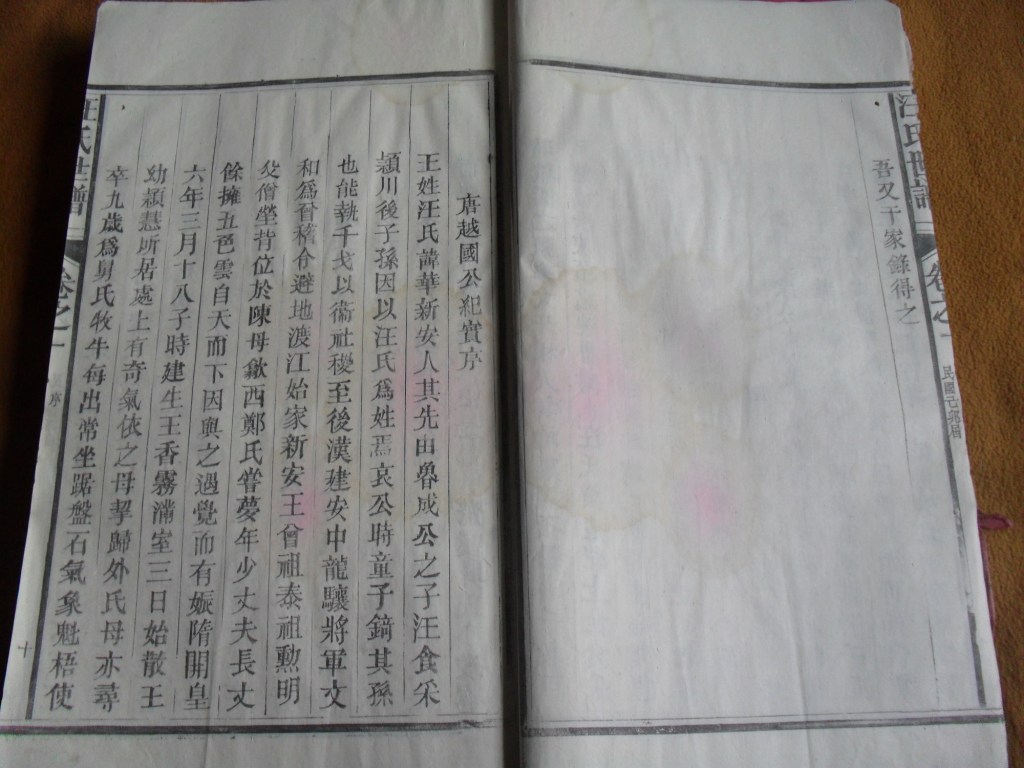 汪氏世譜
卷之一
吾又于家錄得之
唐越國公紀實序
王姓汪氏諱華新安人其先由魯成公之子汪食采
潁川後子孫因以汪氏爲姓焉哀公時童子錡其孫
也能執干戈以衞社稷至後漢建安中龍驤將軍文
和爲會稽令避地渡江始家新安王曾祖泰祖勲明
父僧瑩皆位於陳母歙西鄭氏嘗夢年少丈夫長丈
餘擁五色雲自天而下因與之遇覺而有娠隋開皇
六年三月十八子時建生王香霧滿室三日始散王
幼穎慧所居處上有奇氣依之母挈歸外氏母亦尋
卒九歲爲舅氏牧牛每出常坐踞盤石氣象魁梧使
汪氏世譜
卷之一
序
十